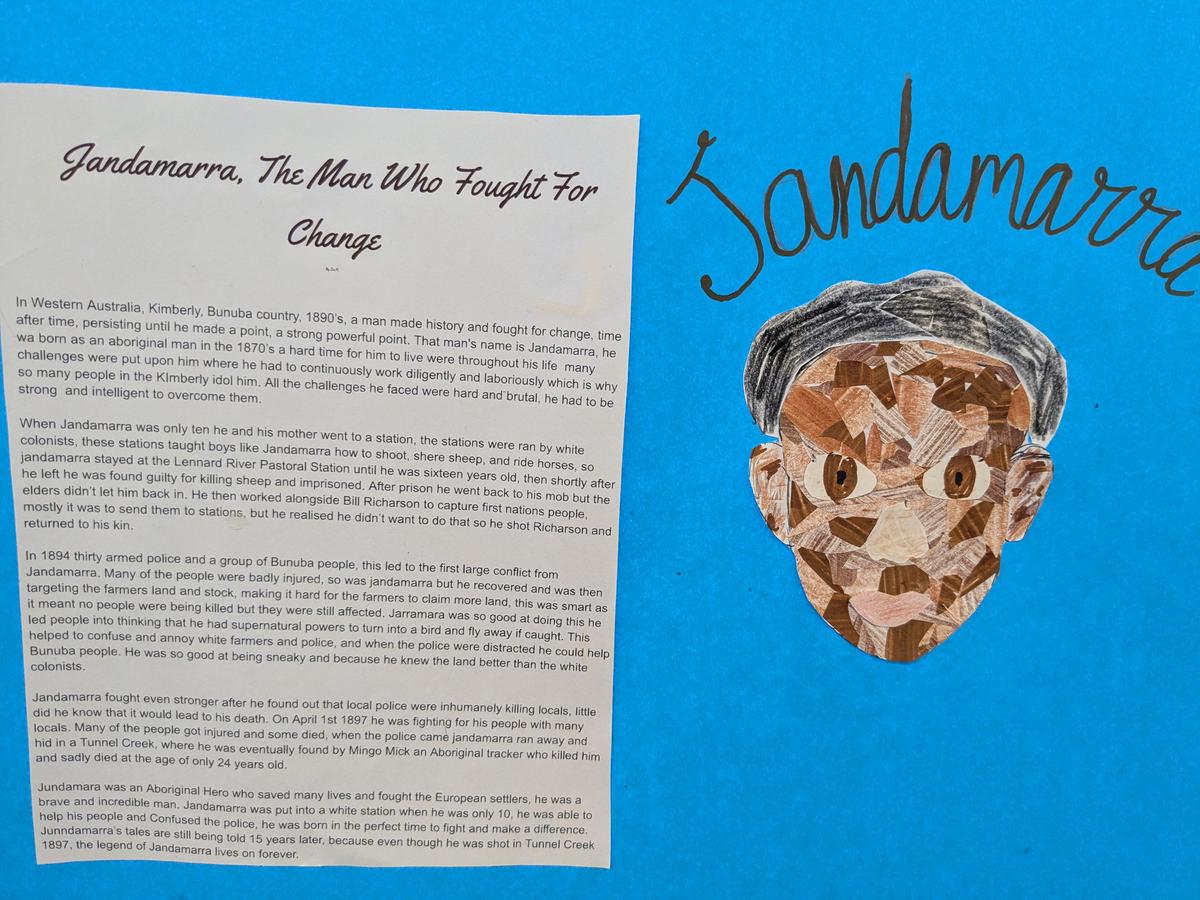 Jandamarra, The Man Who Fought For
Change
In Western Australia, Kimberly, Bunuba country, 1890's, a man made history and fought for change, time
after time, persisting until he made a point, a strong powerful point. That man's name is Jandamarra, he
wa born as an aboriginal man in the 1870's a hard time for him to live were throughout his life many
challenges were put upon him where he had to continuously work diligently and laboriously which is why
so many people in the KImberly idol him. All the challenges he faced were hard and brutal, he had to be
strong and intelligent to overcome them.
When Jandamarra was only ten he and his mother went to a station, the stations were ran by white
colonists, these stations taught boys like Jandamarra how to shoot, shere sheep, and ride horses, so
jandamarra stayed at the Lennard River Pastoral Station until he was sixteen years old, then shortly after
he left he was found guilty for killing sheep and imprisoned. After prison he went back to his mob but the
elders didn't let him back in. He then worked alongside Bill Richarson to capture first nations people,
mostly it was to send them to stations, but he realised he didn't want to do that so he shot Richarson and
returned to his kin.
In 1894 thirty armed police and a group of Bunuba people, this led to the first large conflict from
Jandamarra. Many of the people were badly injured, so was jandamarra but he recovered and was then
targeting the farmers land and stock, making it hard for the farmers to claim more land, this was smart as
it meant no people were being killed but they were still affected. Jarramara was so good at doing this he
led people into thinking that he had supernatural powers to turn into a bird and fly away if caught. This
helped to confuse and annoy white farmers and police, and when the police were distracted he could help
Bunuba people. He was so good at being sneaky and because he knew the land better than the white
colonists.
Jandamarra fought even stronger after he found out that local police were inhumanely killing locals, little
did he know that it would lead to his death. On April 1st 1897 he was fighting for his people with many
locals. Many of the people got injured and some died, when the police came jandamarra ran away and
hid in a Tunnel Creek, where he was eventually found by Mingo Mick an Aboriginal tracker who killed him
and sadly died at the age of only 24 years old.
Jundamara was an Aboriginal Hero who saved many lives and fought the European settlers, he was a
brave and incredible man. Jandamarra was put into a white station when he was only 10, he was able to
help his people and Confused the police, he was born in the perfect time to fight and make a difference.
Junndamarra's tales are still being told 15 years later, because even though he was shot in Tunnel Creek
1897, the legend of Jandamarra lives on forever.
Jandamarra